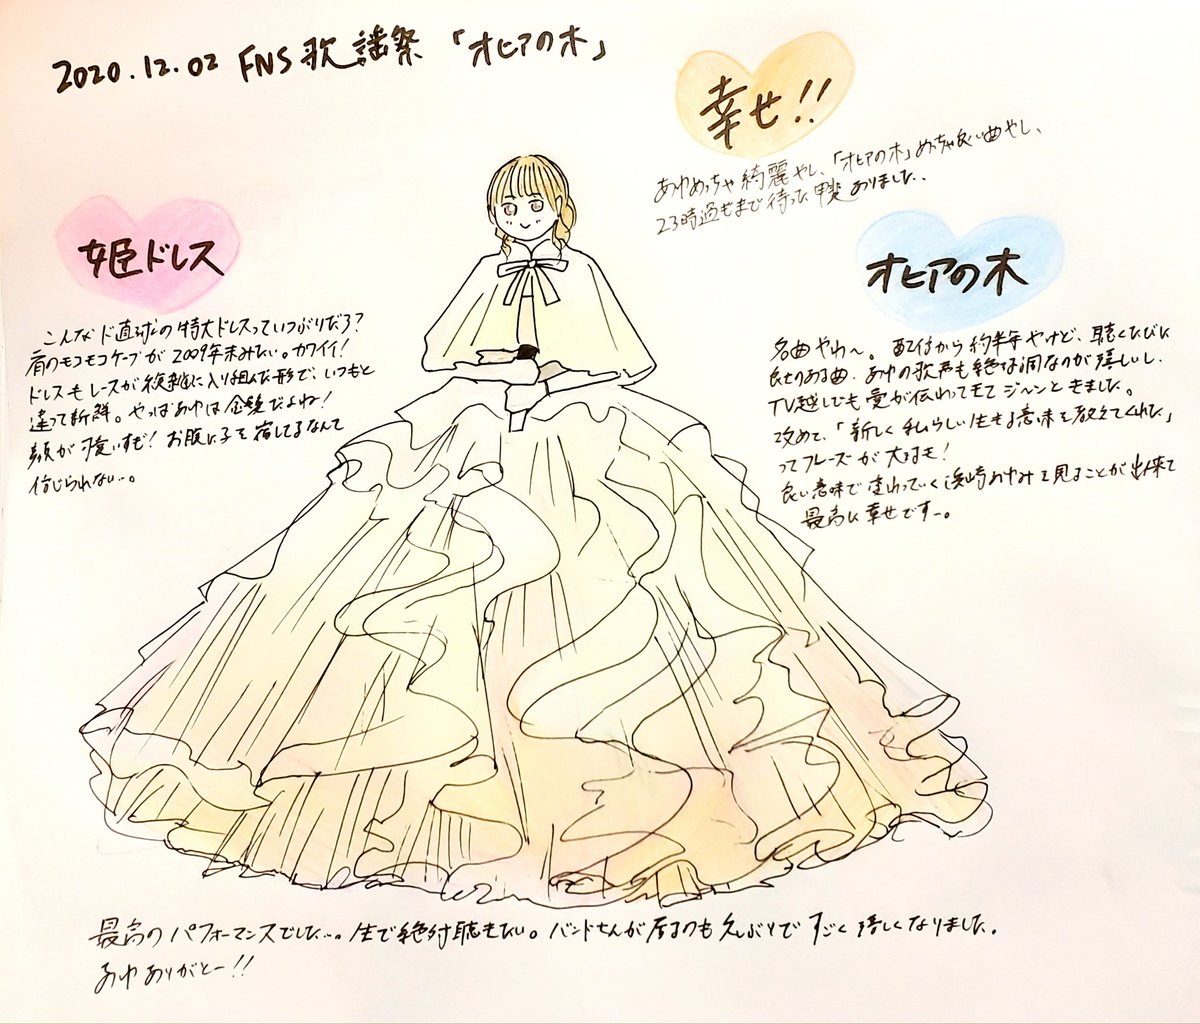 2020.12.02 FNS歌謡祭 「オヒアの木」
幸せ!!
あゆめっちゃ綺麗やし、「オヒアの木」めっちゃ良い曲やし、
23時過ぎまで待った甲斐ありました..
姫ドレス
こんなド直球の特大ドレスっていつぶりだろ?
肩のモコモコケープが2009年末みたい。カワイイ!
ドレスもレースが複雑に入り組んだ形で、いつもと
違って新鮮。やっぱあゆは金髪だよね!
顔が可愛いすぎ! お腹に子を宿してるなんて
信じられない…。
オヒアの木
名曲やわ〜。配信から約半年やけど、聴くたびに
良さのある曲。あゆの歌声も絶好調なのが嬉しいし、
TV越しでも愛が伝わってきてジーンときました。
改めて、「新しく私らしい生きる意味を教えてくれた」
ってフレーズが大好き!
良い意味で変わっていく浜崎あゆみを見ることが出来て
最高に幸せですー。
最高のパフォーマンスでした…。生で絶対聴きたい。バンドさんが居るのも久しぶりですごく嬉しくなりました。
あゆありがとー!!